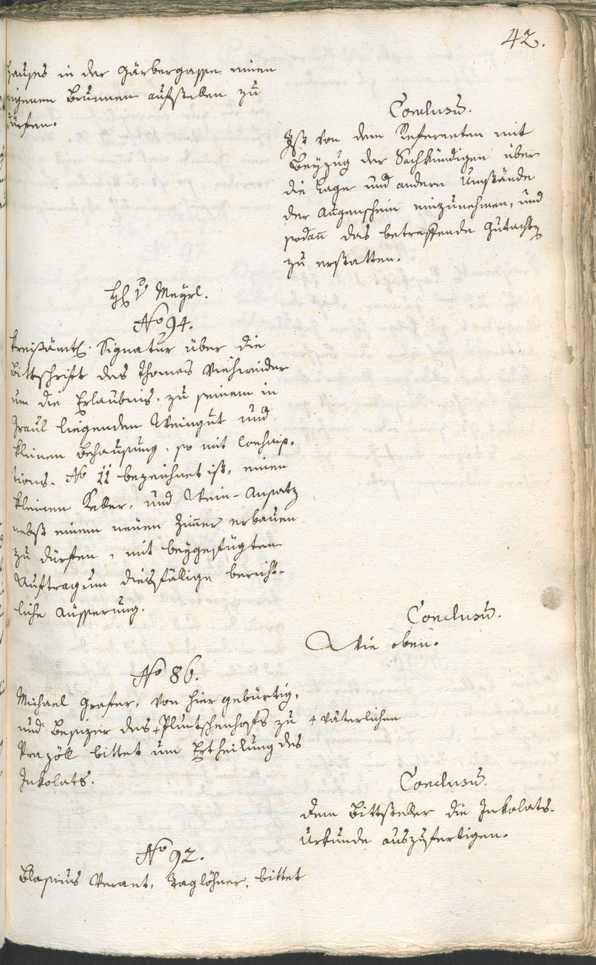 42.
hauses in der Gärbergasse einen
eigenen Brunnen aufstellen zu
dürfen.
Conclusū.
Ist von dem Referenten mit
Beyzug der Sachkündigen über
die Lage und andern Umstände
der Augenschein einzunehmen, und
sodan̄ das betreffende Gutachten
zu erstatten.
H. v Mayrl.
No 94.
Kreisämtl. Signatur über die
Bittschrift des Thomas
um die Erlaubnis, zu seinem in
Graul liegenden Weingut und
kleinen Behausung, so mit Conscrip-
tions- No 11 bezeichnet ist, einen
kleinen Keller, und Wein-Ansatz
nebst einem neuen Zim̄er erbauen
zu dürfen, mit beygefügten
Auftrag um diesfällige bericht-
liche Äusserung.
Conclusū.
Wie oben.
No 86.
Michael Grafer, von hier gebürtig,
und Besizer des + Pluntschenhofs zu
+ väterlichen
bittet um Ertheilung des
Inkolats.
Conclusū.
dem Bittsteller die Inkolats-
Urkunde auszufertigen.
No 92.
Blasius Verant, Taglöhner, bittet